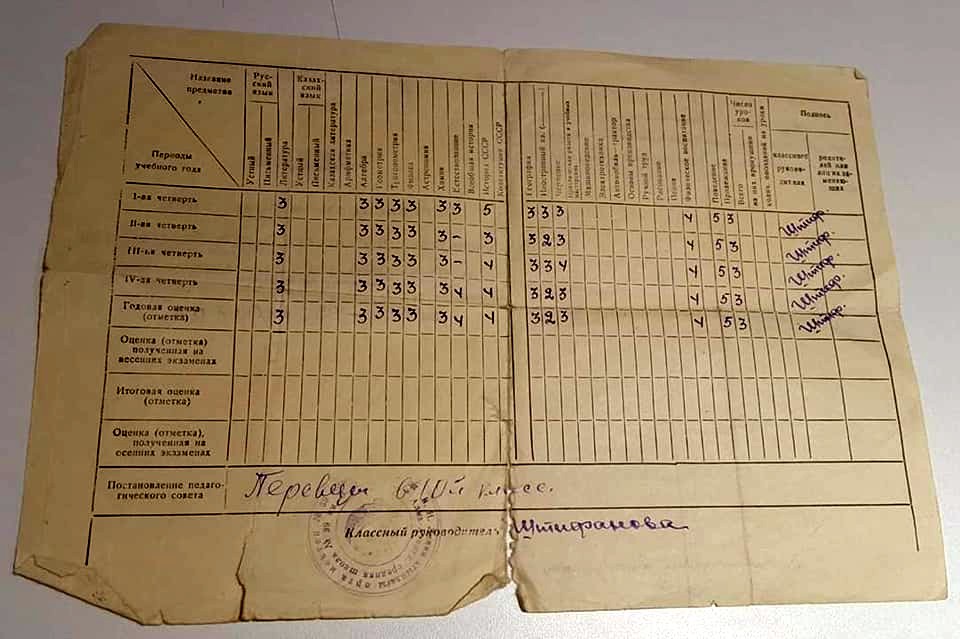 Название предметов
Периоды учебного года
Русский язык
Устный
Письменный
Литература
Казахский язык
Устный
Письменный
Казахская литература
Арифметика
Алгебра
Геометрия
Тригонометрия
Физика
Астрономия
Химия
Естествознание
Всеобщая история
История СССР
Конституция СССР
География
Иностранный яз. (
Черчение
Машиноведение
Электротехника
Автомобиль-трактор
Основы производства
Ручной труд
Рисование
Пение
Физическое воспитание
Поведение
Прилежание
Число уроков
Всего
из них пропущено
колич. опозданий на уроки
Подпись
классного руководителя
родителей или лиц их заменяющих
I-ая четверть 3 3 3 3 3 3 3 5 3 3 3 4 5 3 Штиф.
II-ая четверть 3 3 3 3 3 3 - 3 3 2 3 4 5 3 Штиф.
III-ья четверть 3 3 3 3 3 3 - 4 3 3 4 4 5 3 Штиф.
IV-ая четверть 3 3 3 3 3 3 4 4 3 2 3 4 5 3 Штиф.
Годовая оценка (отметка) 3 3 3 3 3 3 4 4 3 2 3 4 5 3 Штиф.
Оценка (отметка)
полученная на
весенних экзаменах
Итоговая оценка
(отметка)
Оценка (отметка),
полученная на
осенних экзаменах
Постановление педаго-
гического совета
в 10й класс.
Классный руководитель Штифанова
орта мектеп
средняя школа № 66